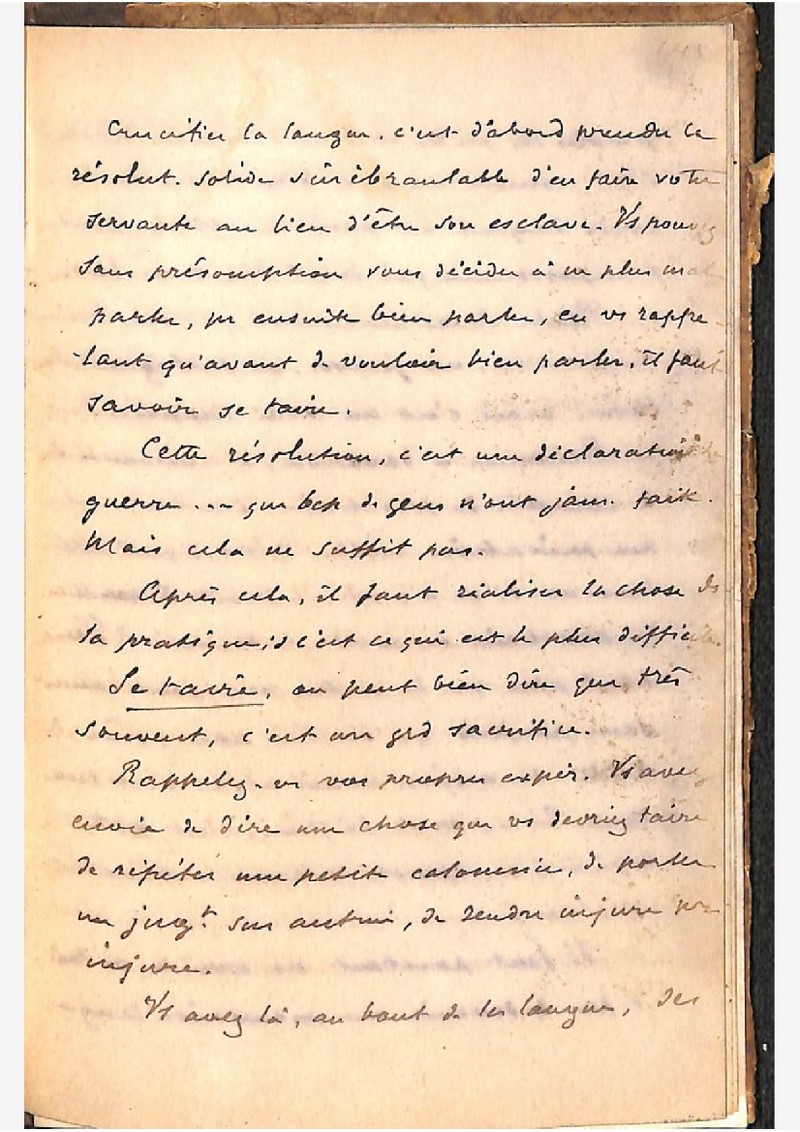 Crucifier la langue, c'est d'abord prendre la
résolut. solide inébranlable d'en faire votre
servante au lieu d'être son esclave. Vs pouvez
sans présomption vous décider à ne plus mal
parler, pr ensuite bien parler, en vs rappe-
-lant qu'avant de vouloir bien parler, il faut
savoir se taire.
Cette résolution, c'est une déclaration de
guerre ... que bcp de gens n'ont jam. faite.
Mais cela ne suffit pas.
Après cela, il faut réaliser la chose ds
la pratique, c'est ce qui est le plus difficile.
Se taire, on peut bien dire que très
souvent, c'est un grd sacrifice.
Rappelez-vs vos propres expér. Vs avez
envie de dire une chose que vs devriez taire
de répéter une petite calomnie, de porter
un jugt sur autrui, de rendre injure pr
injure.
Vs avez là, au bout de la langue, des